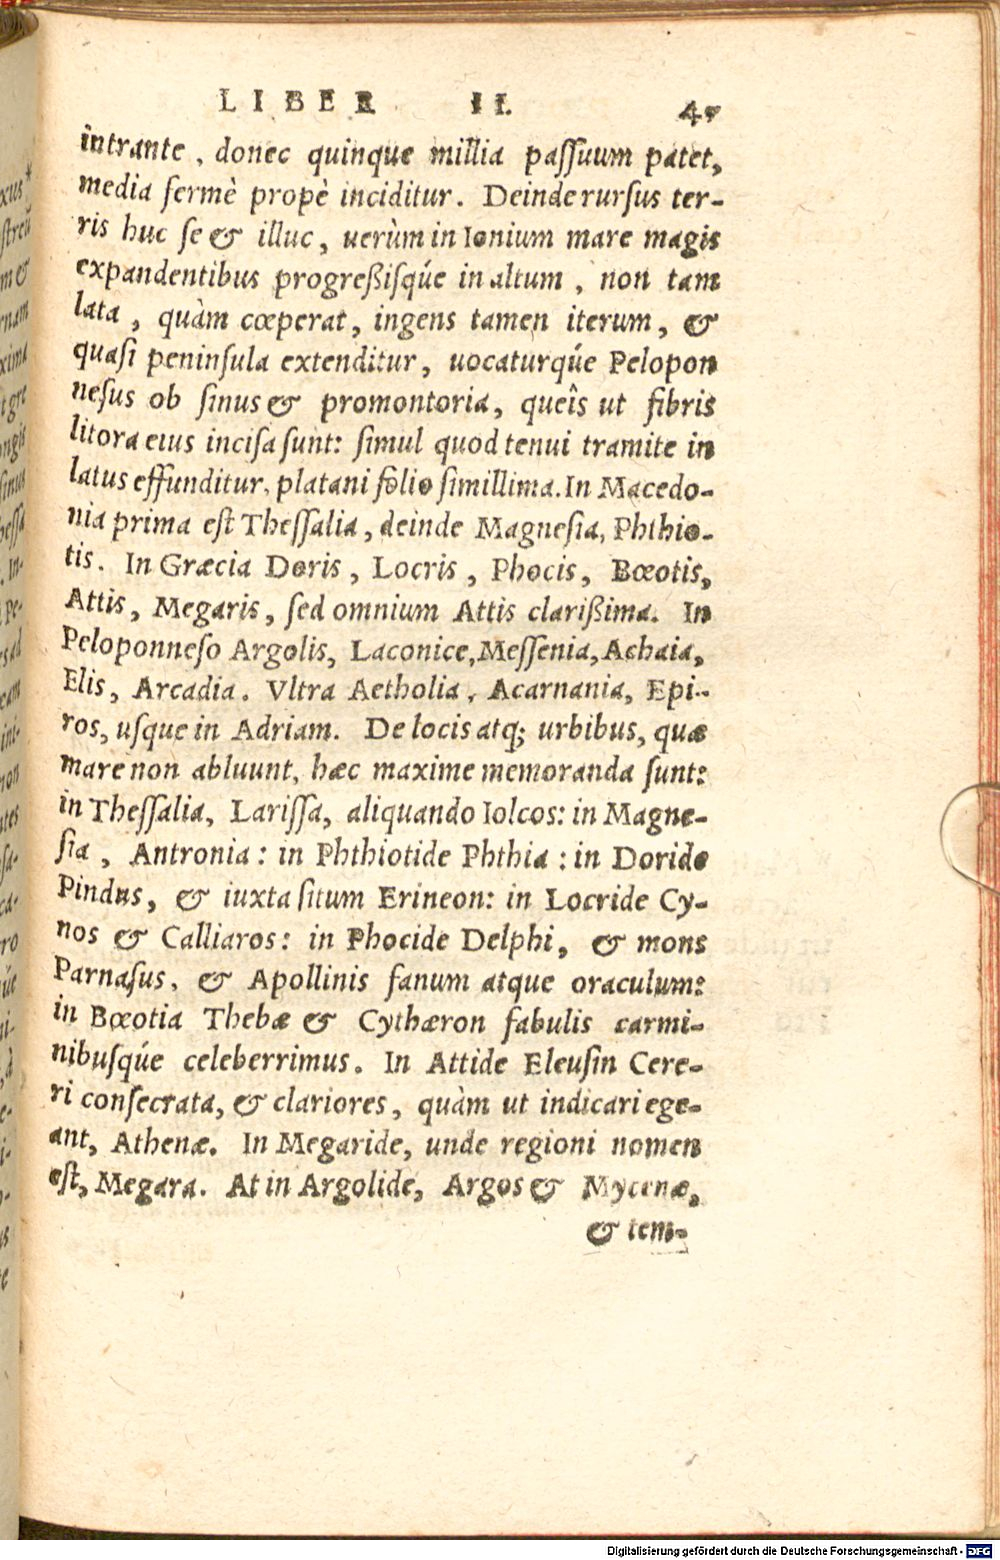 LIBER II.
intrante, donec quinque millia paſſuum patet,
media fermè propè inciditur. Deinde rurſus ter-
ris huc ſe & illuc, uerùm in Ionium mare magis
expandentibus progreßiſq́ue in altum, non tam
lata, quàm cœperat, ingens tamen iterum, &
quaſi peninſula extenditur, uocaturq́ue Pelopon
neſus ob ſinus & promontoria, queîs ut fibris
litora eius inciſa ſunt: ſimul quod tenui tramite in
latus effunditur, platani folio ſimillima. In Macedo-
nia prima eſt Theſſalia, deinde Magneſia, Phthio-
tis. In Græcia Doris, Locris, Phocis, Bœotis,
Attis, Megaris, ſed omnium Attis clarißima. In
Peloponneſo Argolis, Laconice, Meſſenia, Achaia,
Elis, Arcadia. Vltra Aetholia, Acarnania, Epi-
ros, uſque in Adriam. De locis atq; urbibus, quæ
mare non abluunt, hæc maxime memoranda ſunt:
in Theſſalia, Lariſſa, aliquando Iolcos: in Magne-
ſia, Antronia: in Phthiotide Phthia: in Doride
Pindus, & iuxta ſitum Erineon: in Locride Cy-
nos & Calliaros: in Phocide Delphi, & mons
Parnaſus, & Apollinis fanum atque oraculum:
in Bœotia Thebæ & Cythæron fabulis carmi-
nibuſq́ue celeberrimus. In Attide Eleuſin Cere-
ri conſecrata, & clariores, quàm ut indicari ege-
ant, Athenæ. In Megaride, unde regioni nomen
eſt, Megara. At in Argolide, Argos & Mycenæ,
& tem-
Digitalisierung gefördert durch die Deutsche Forschungsgemeinschaft - DFG